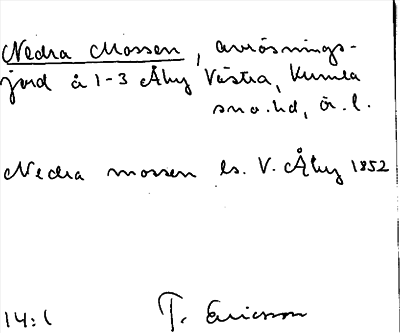 Nedra Mossen, avrösnings-
jord å 1-3 Åby Västra, Kumla
sn o. hd, ör. l.
Nedra mossen ls. V. Åby 1852
14:1 T. Ericsson